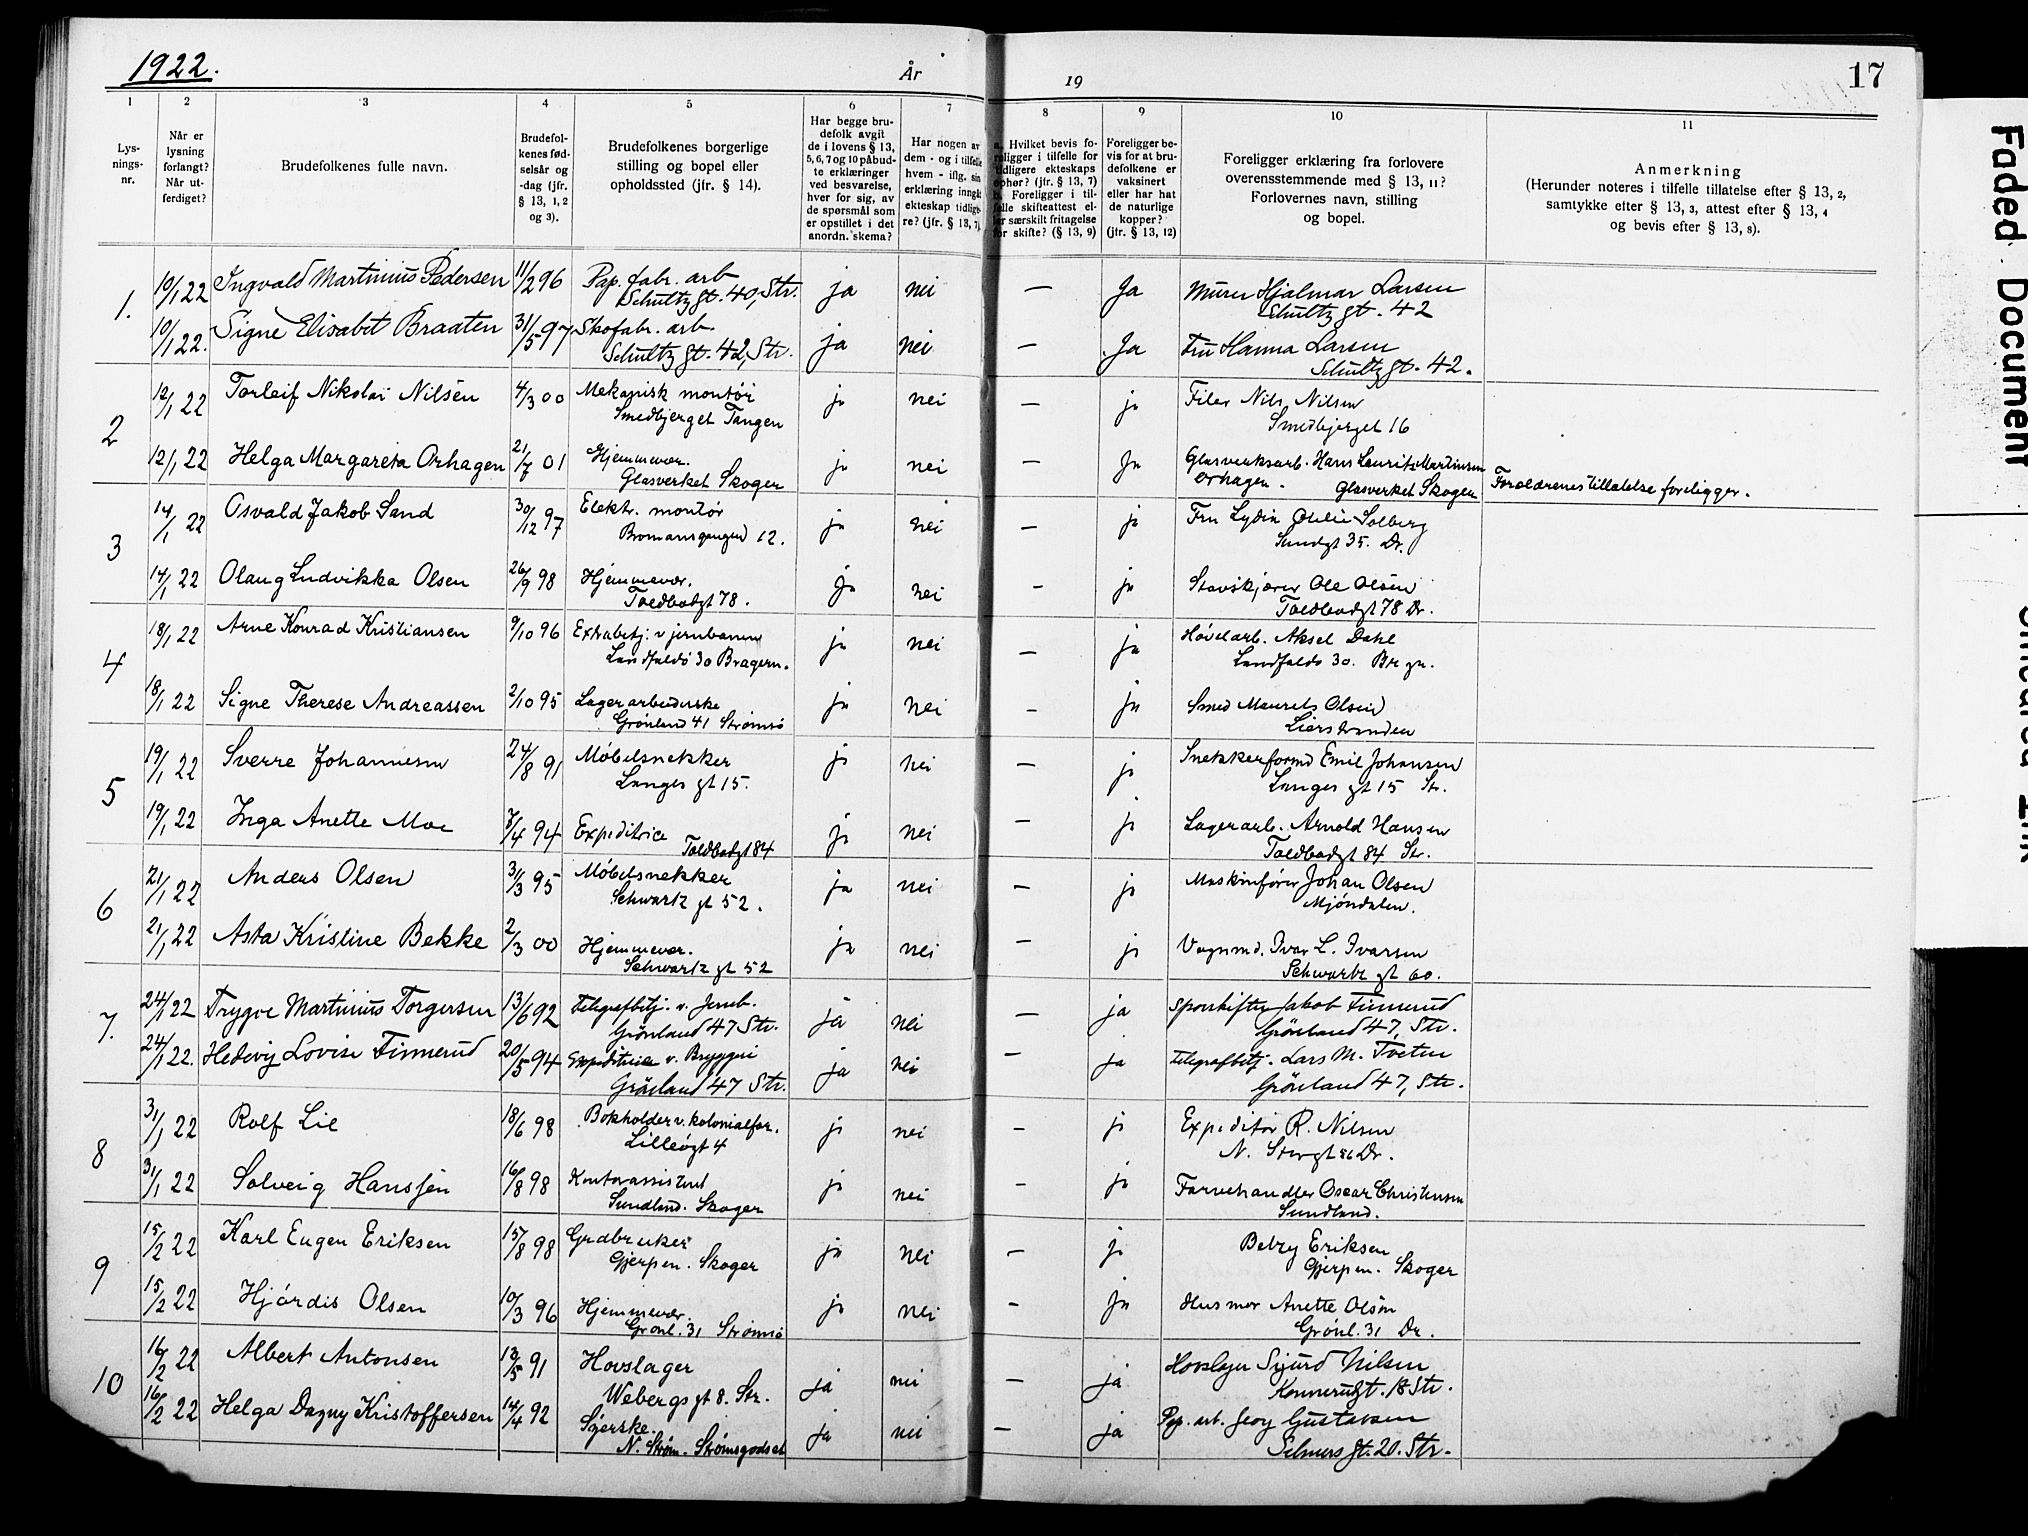 1922.
År
19
17
1
2
3
4
5
6
7
8
9
10
11
Lys-
nings-
nr.
Når er
lysning
forlangt?
Når ut-
ferdiget?
Brudefolkenes fulle navn.
Brudefol-
kenes fød-
selsår og
-dag (jfr.
§ 13, 1, 2
og 3).
Brudefolkenes borgerlige
stilling og bopel eller
opholdssted (jfr. § 14).
Har begge bru-
defolk avgit
de i lovens § 13,
5, 6, 7 og 10 påbud-
te erklæringer
ved besvarelse,
hver for sig, av
de spørsmål som
er opstillet i det
anordn. skema?
Har nogen av
dem - og i tilfelle
hvem - iflg. sin
erklæring inngåt
ekteskap tidlige-
re? (jfr. § 13, 7)
a. Hvilket bevis fo-
religger i tilfelle for
tidligere ekteskaps
ophør? (jfr. § 13, 7)
b. Foreligger i til-
felle skifteattest el-
ler særskilt fritagelse
for skifte? (§ 13, 9)
Foreligger be-
vis for at bru-
defolkene er
vaksinert
eller har hat
de naturlige
kopper?
(jfr. § 13, 12)
Foreligger erklæring fra forlovere
overensstemmende med § 13, 11?
Forlovernes navn, stilling
og bopel.
Anmerkning
(Herunder noteres i tilfelle tillatelse efter § 13, 2,
samtykke efter § 13, 3, attest efter § 13, 4
og bevis efter § 13, 8).
1. 10/1 22 Ingvald Martinius Pedersen 11/2 96 Pap. fabr. arb ja nei — Ja Murer Hjalmar Larsen
Schultz gt. 40, Str. Schultz gt. 42
10/1 22. Signe Elisabet Braaten 31/5 97 Skofabr. arb. ja nei — Ja Fru Hanna Larsen
Schultz gt. 42, Str. Schultz gt. 42.
2 12/1 22 Torleif Nikolai Nilsen 4/3 00 Mekanisk montör ja nei — ja Filer Nils Nilsen
Smedbjerget Tangen Smedbjerget 16
12/1 22 Helga Margareta Orhagen 21/7 01 Hjemmevær. ja nei — Ja Glasverksarb. Hans Laurits Martinsen
Glasverket Skoger Orhagen. Glasverket Skoger Foreldrenes tillatelse foreligger.
3 14/1 22 Osvald Jakob Sand 30/12 97 Elektr. montør ja nei — ja Fru Lydia Othilie Solberg
Bromansgangen 12. Sundgt 35. Dr.
14/1 22 Olaug Ludvikka Olsen 26/9 98 Hjemmevær. ja nei — ja Stavskjærer Ole Olsen
Toldbodgt 78. Toldbodgt 78 Dr.
4 18/1 22 Arne Konrad Kristiansen 9/10 96 Extrabetj. v jernbanen ja nei — ja Høvelarb. Aksel Dahl
Landfaldö 30 Bragern. Landfaldö 30. Brgn.
18/1 22 Signe Therese Andreassen 2/10 95 Lagerarbeiderske ja nei — ja Smed Maurits Olsen
Grönland 41 Strømsö Lierstranden
5 19/1 22 Sverre Johannesen 24/8 91 Møbelsnekker ja nei — ja Snekkerformd Emil Johansen
Langes gt 15. Langes gt 15 Str.
19/1 22 Inga Anette Moe 94 Expeditrice ja nei — ja Lagerarb. Arnold Hansen
Toldbodgt 84 Toldbodgt 84 Str.
6 21/1 22 Anders Olsen 31/3 95 Møbelsnekker ja nei — ja Maskinfører Johan Olsen
Schwartz gt 52. Mjöndalen.
21/1 22 Asta Kristine Bekke 2/3 00 Hjemmevær. ja nei — ja Vognmd. Ivar L. Ivarsen
Schwartz gt 52 Schwartz gt 60.
7. 24/1 22 Trygve Martinius Torgersen 13/6 92 Telegrafbetj. v. Jernb. ja nei — ja Sporskifter Jakob Finnerud
Grönland 47 Str. Grönland 47, Str.
24/1 22. Hedevig Lovise Finnerud 20/5 94 Expeditrice v. Bryggeri ja nei — ja Telegrafbetj. Lars M. Tveten
Grönland 47 Str. Grönland 47, Str.
8 31/1 22 Rolf Lie 18/6 98 Bokholder v. kolonialfor. ja nei — ja Expeditör R. Nilsen
Lilleögt 4 N. Storgt 56 Dr.
31/1 22 Solveig Hanssen 16/8 98 Kontorassistent ja nei — ja Farvehandler Oscar Christensen
Sundland. Skoger Sundland.
9 15/2 22 Karl Eugen Eriksen 15/8 98 Grdbruker ja nei — ja Betzy Eriksen
Gjerpen. Skoger Gjerpen. Skoger
15/2 22 Hjördis Olsen 10/3 96 Hjemmevær. ja nei — ja Husmor Anette Olsen
Grönl. 31 Strømsö Grönl. 31 Dr.
10 16/2 22 Albert Antonsen 13/5 91 Hovslager ja nei — ja Hovslager Sigurd Nilsen
Webergs gt 8. Str. Konnerudgt. 18 Str.
16/2 22 Helga Dagny Kristoffersen 14/4 92 Syerske. ja nei — ja Pap. arb. Georg Gustavsen
N. Strøm. Strømsgodset Selmers gt. 20. Str.
Faded Document